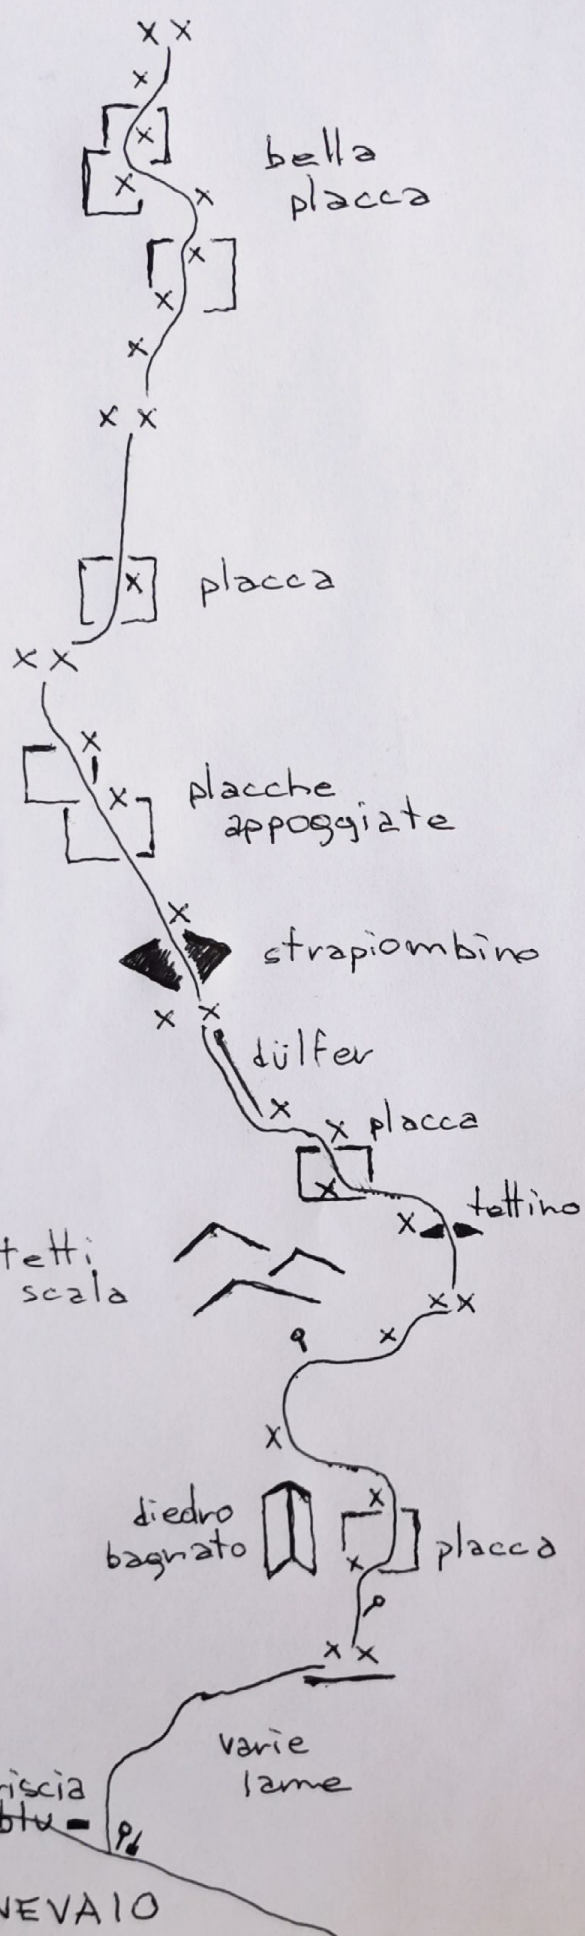 bella
placca
placca
placche
appoggiate
strapiombino
dülfer
placca
tettino
tetti
scala
diedro
bagnato
placca
varie
lame
riscia
blu
NEVAIO